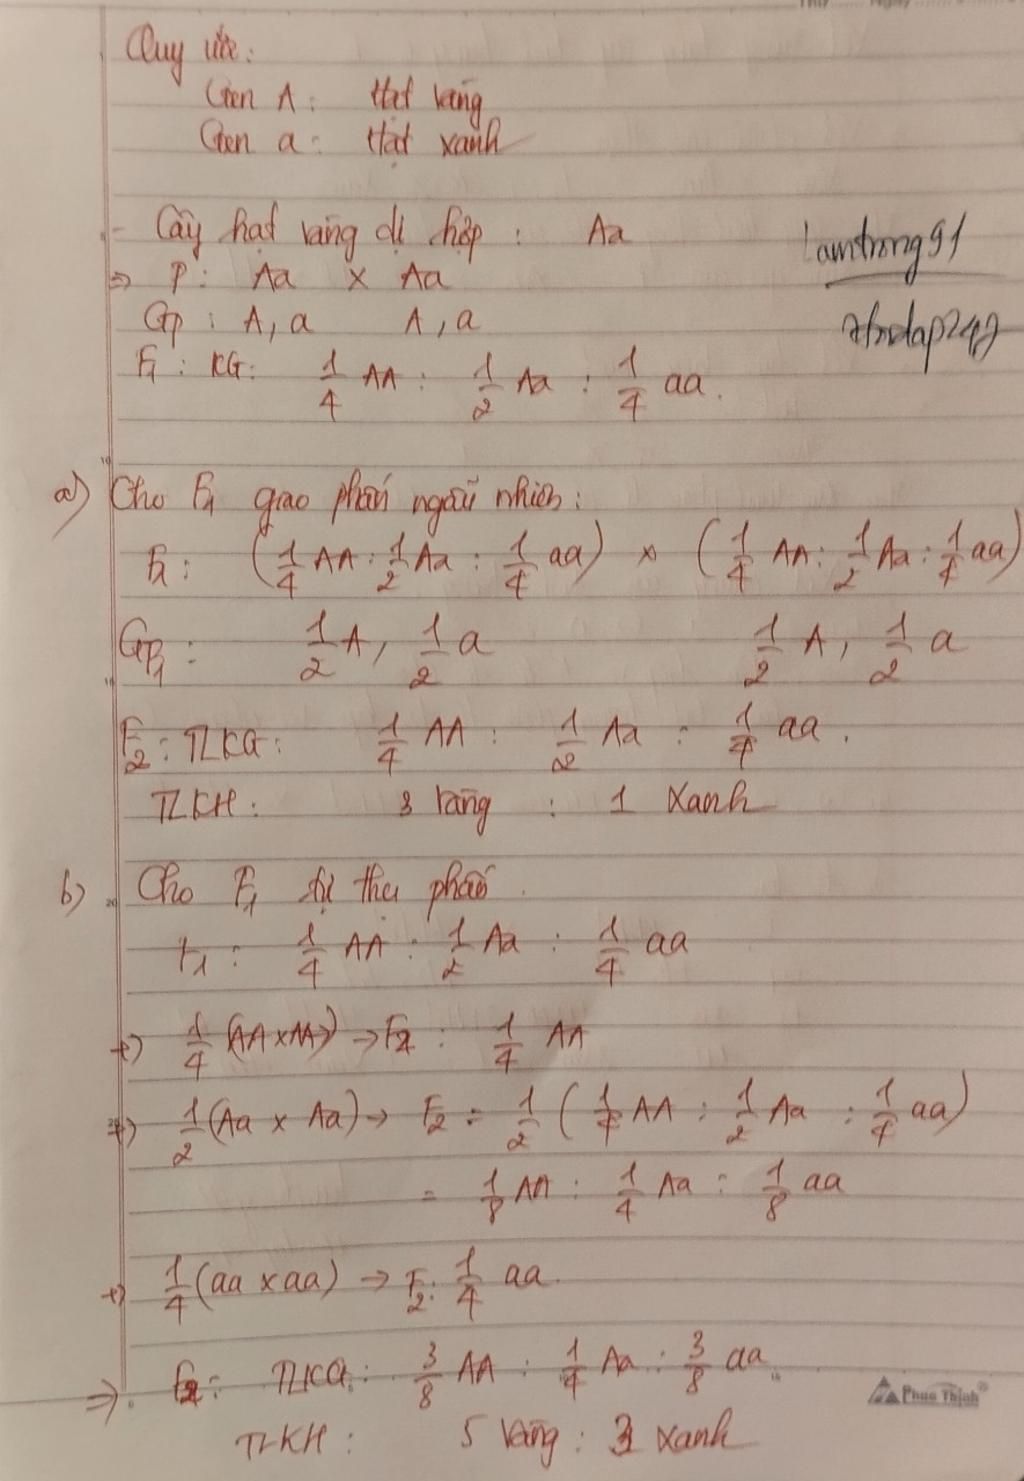 Quy ước:
Gen A: Hạt vàng
Gen a: Hạt xanh
- Cây hạt vàng dị hợp : Aa
lamtrong91
=> P: Aa x Aa
GP : A, a A, a
F1 : KG: 1/4 AA : 1/2 Aa : 1/4 aa.
a) Cho F1 giao phấn ngẫu nhiên:
F1 : (1/4 AA : 1/2 Aa : 1/4 aa) x (1/4 AA : 1/2 Aa : 1/4 aa)
GF1 : 1/2 A, 1/2 a 1/2 A, 1/2 a
F2 : TLKG : 1/4 AA : 1/2 Aa : 1/4 aa.
TLKH : 3 vàng : 1 Xanh
b) Cho F1 tự thụ phấn.
F1 : 1/4 AA : 1/2 Aa : 1/4 aa
+) 1/4 (AA x AA) → F2 : 1/4 AA
+) 1/2 (Aa x Aa) → F2 = 1/2 (1/4 AA : 1/2 Aa : 1/4 aa)
= 1/8 AA : 1/4 Aa : 1/8 aa
+) 1/4 (aa x aa) → F2: 1/4 aa.
=> F2: TLKG: 3/8 AA : 1/4 Aa : 3/8 aa.
Phuc Thịnh
TLKH : 5 vàng : 3 Xanh